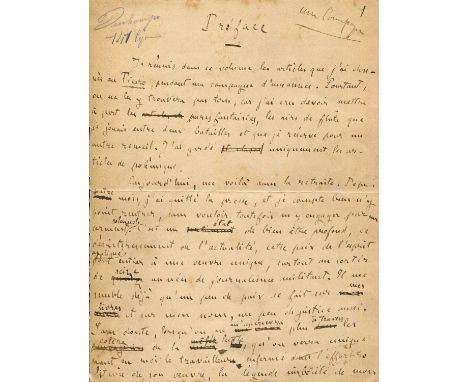 une Campagne
1
Préface
Je réunis dans ce volume les articles que j'ai don-
nés au Figaro, pendant ma campagne d'une année. Pourtant,
on ne les y trouvera pas tous, car j'ai cru devoir mettre
à part les pures fantaisies, les airs de flûte que
je jouais entre deux batailles et que je réserve pour un
autre recueil. J'ai gardé uniquement les ar-
ticles de polémique.
Aujourd'hui, me voilà dans la retraite. Depuis
quatre mois, j'ai quitté la presse, et je compte bien n'y
point rentrer, sans vouloir toutefois m'y engager par un
serment solennel. C'est un état de bien être profond, ce
désintéressement de l'actualité, cette paix de l'esprit
appliqué entier à une œuvre unique, surtout au sortir
de seize années de journalisme militant. Il me
semble déjà qu'un peu de paix se fait sur mes
livres et sur mon nom, un peu de justice aussi.
Sans doute, lorsqu'on ne m'apercevra plus à travers les
colères de la lutte, qu'on verra unique-
ment en moi le travailleur, enfermé dans l'effort
de son œuvre, la légende imbécile de mon